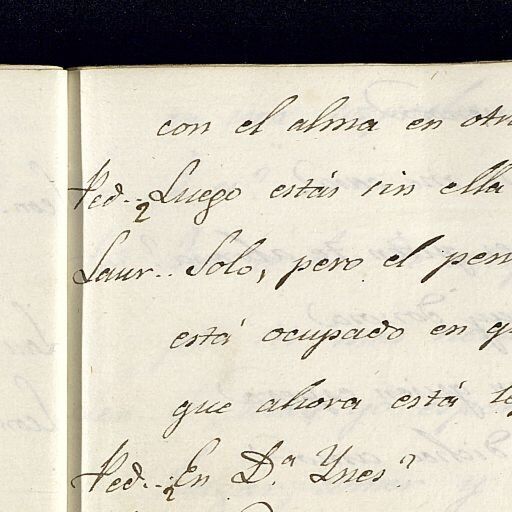 con el alma en otr
Ped.. ¿Luego estás sin ella
Laur.. Solo, pero el pen
está ocupado en q
que ahora está le
Ped.. ¿En D.ª Ynes?